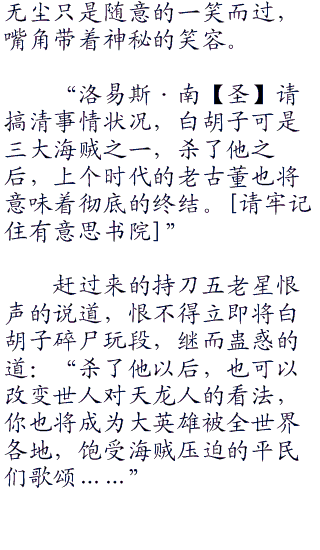 无尘只是随意的一笑而过，
嘴角带着神秘的笑容。
“洛易斯·南【圣】请
搞清事情状况，白胡子可是
三大海贼之一，杀了他之
后，上个时代的老古董也将
意味着彻底的终结。[请牢记
住有意思书院]”
赶过来的持刀五老星恨
声的说道，恨不得立即将白
胡子碎尸玩段，继而蛊惑的
道：“杀了他以后，也可以
改变世人对天龙人的看法，
你也将成为大英雄被全世界
各地，饱受海贼压迫的平民
们歌颂……”